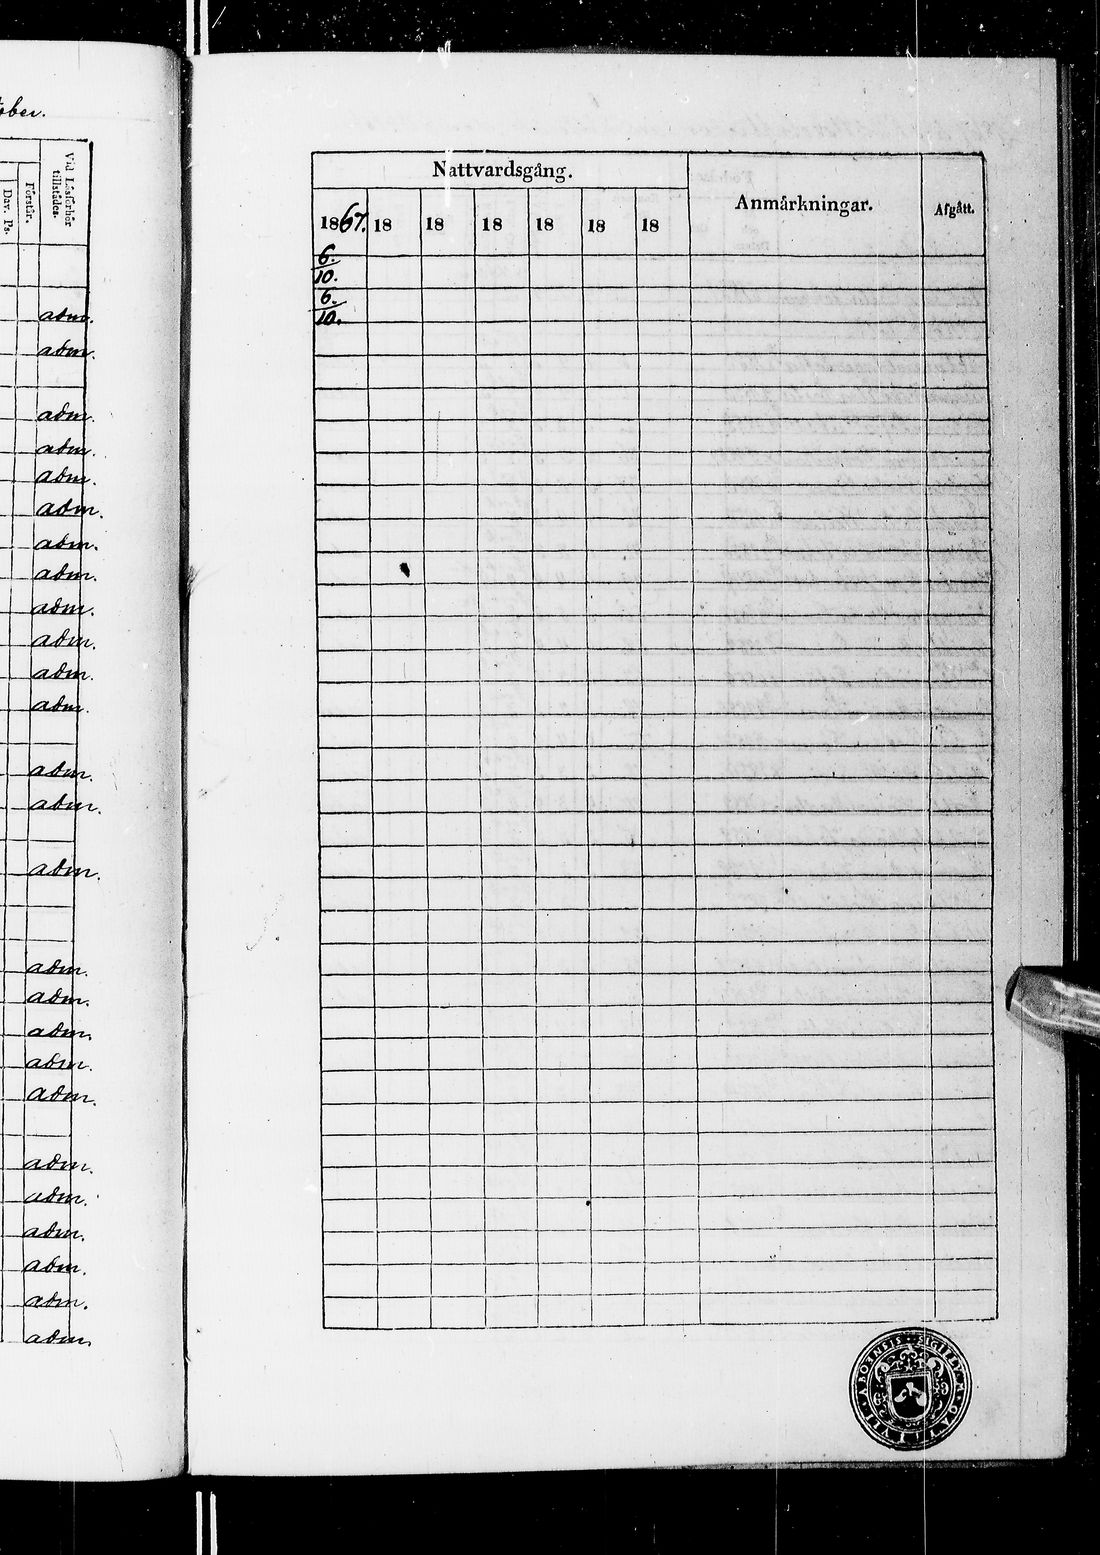 ober.
Vid Läsförhör tillstädes.
Förstår.
Dav. Ps.
adm.
adm.
adm.
adm.
adm.
adm.
adm.
adm.
adm.
adm.
adm.
adm.
adm.
adm.
adm.
adm.
adm.
adm.
adm.
adm.
adm.
adm.
adm.
adm.
adm.
adm.
Nattvardsgång.
Anmärkningar.
Afgått.
1867. 18 18 18 18 18 18
6.
10.
6.
10.